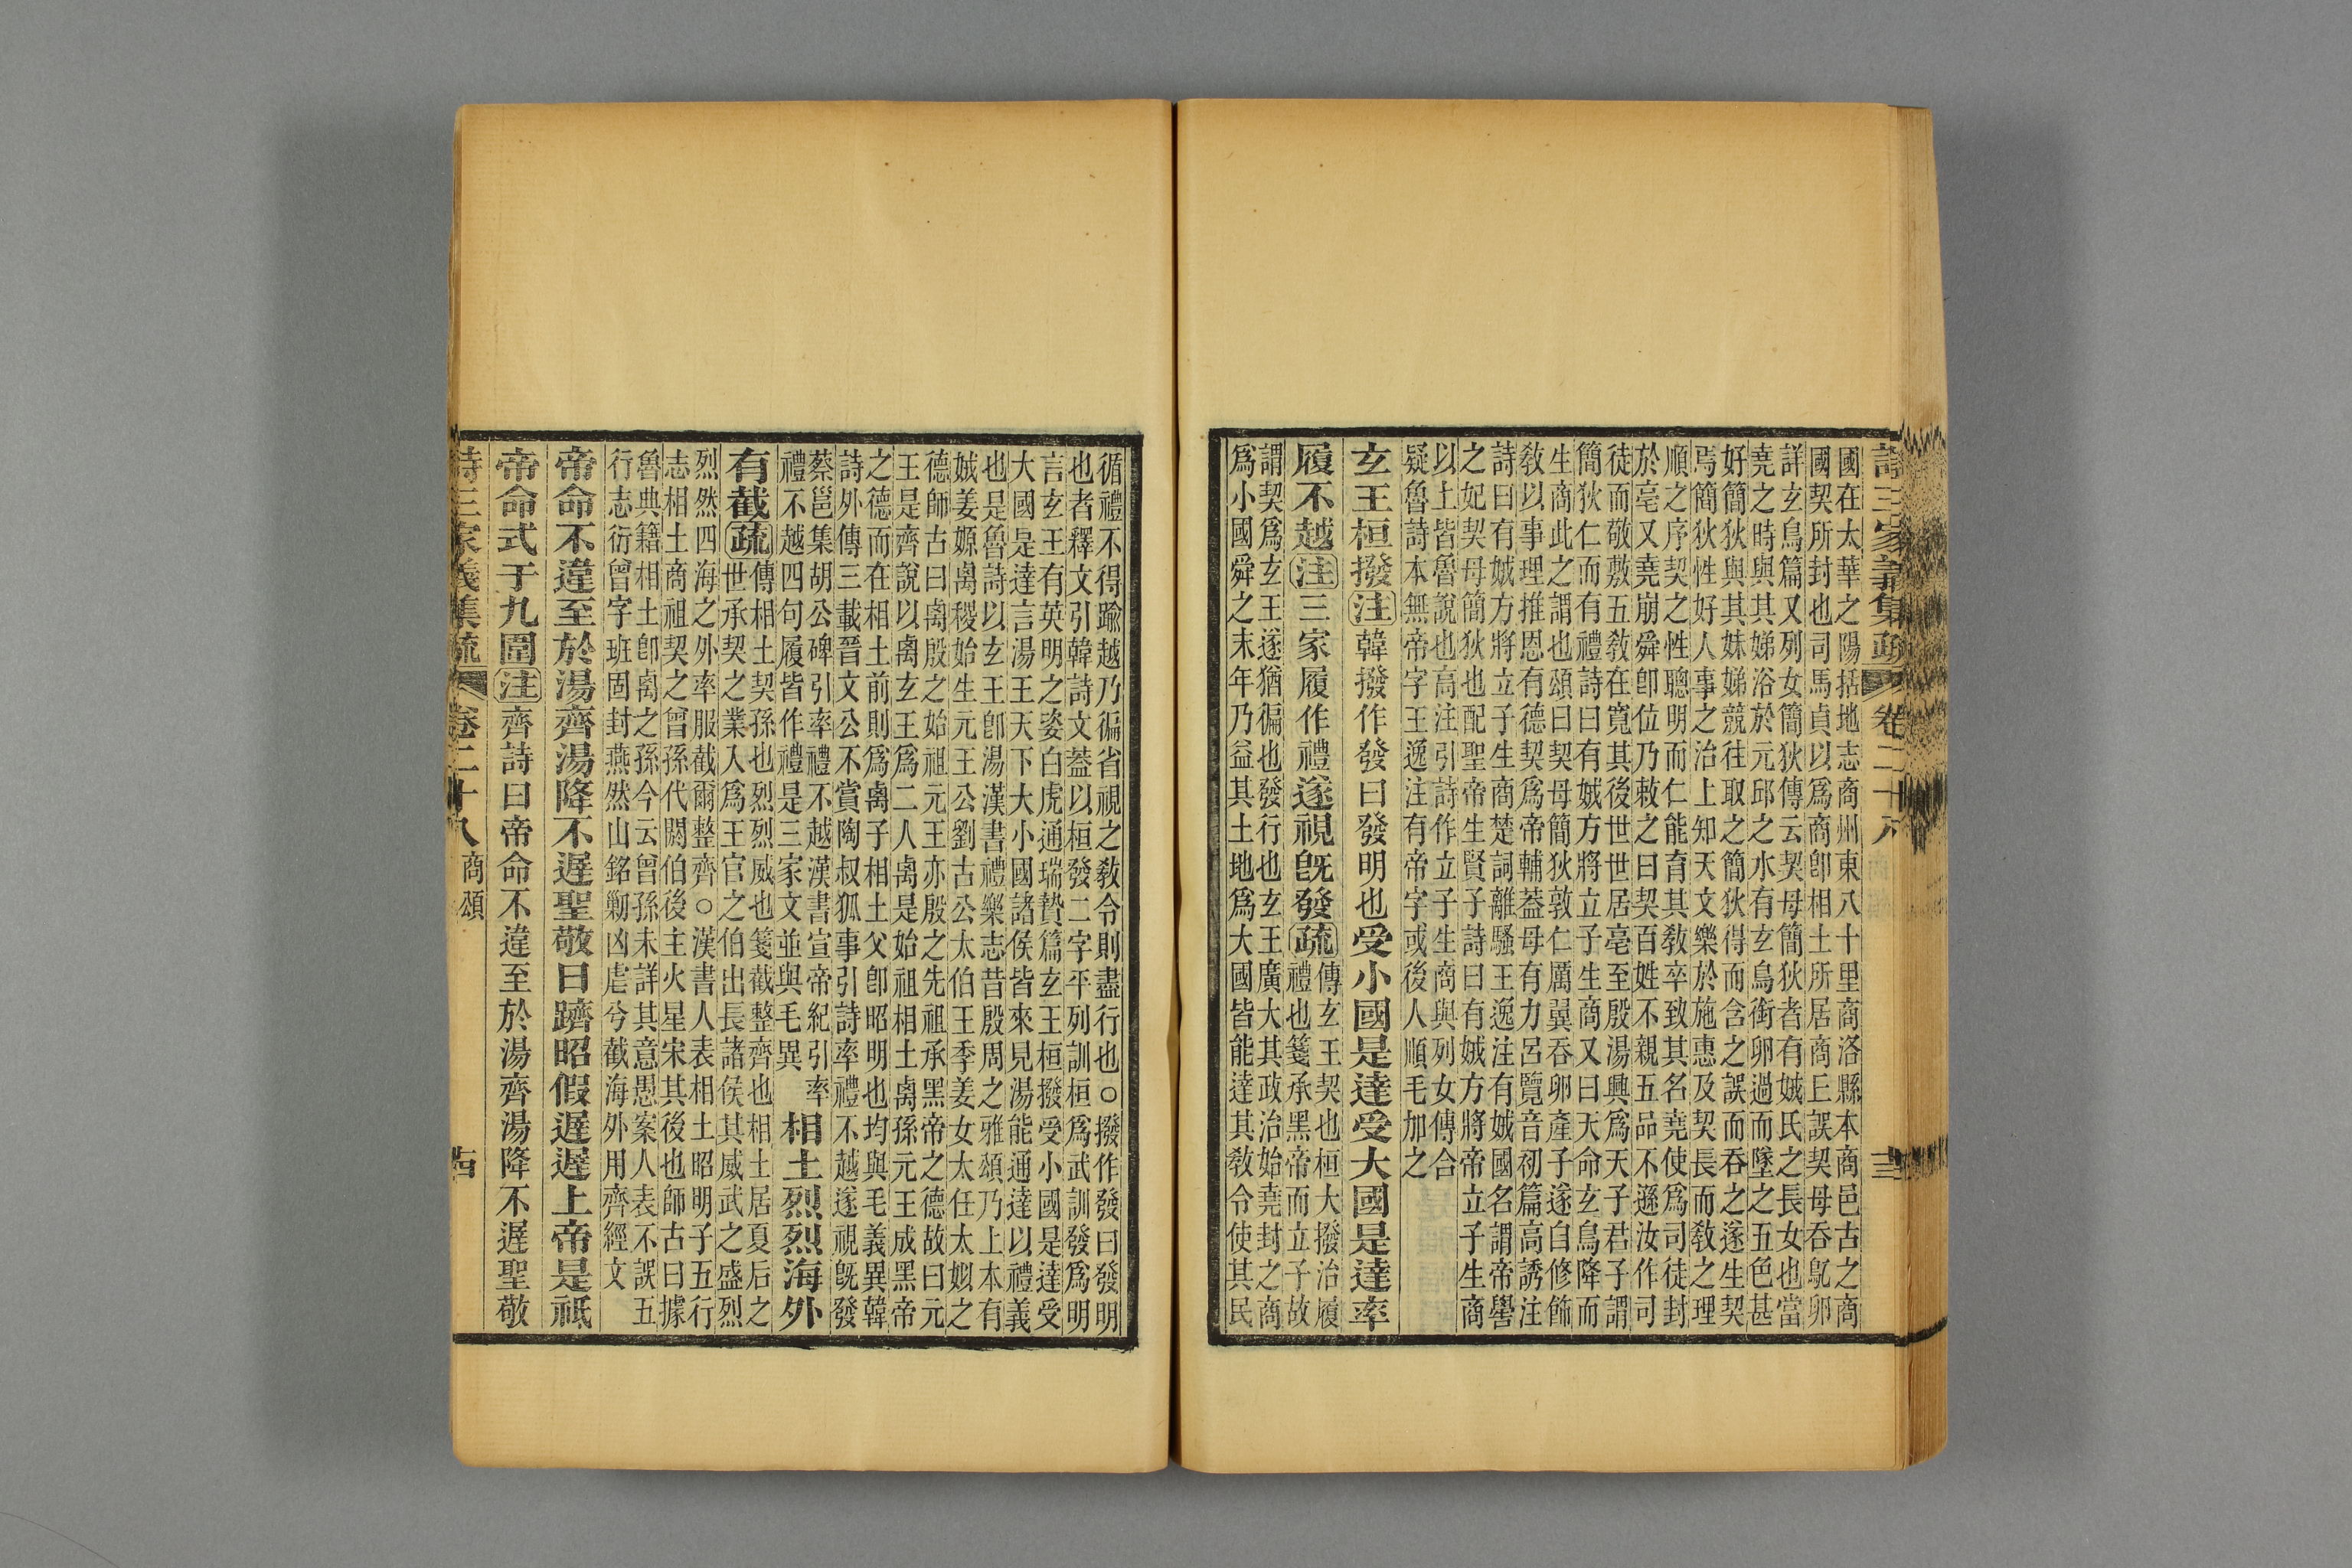 詩三家義集疏 卷二十八 十三
國在太華之陽括地志商州東八十里商洛縣本商邑古之商
國契所封也司馬貞以爲商卽相土所居商丘誤契母吞鳦卵
詳玄鳥篇又列女簡狄傳云契母簡狄者有娀氏之長女也當
堯之時與其娣浴於元邱之水有玄鳥銜卵過而墜之五色甚
好簡狄與其妹娣競往取之簡狄得而含之誤而吞之遂生契
焉簡狄性好人事之治上知天文樂於施惠及契長而敎之理
順之序契之性聰明而仁能育其敎卒致其名堯使爲司徒封
於亳又堯崩舜卽位乃敕之曰契百姓不親五品不遜汝作司
徒而敬敷五敎在寬其後世世居亳至殷湯興爲天子君子謂
簡狄仁而有禮詩曰有娀方將立子生商又曰天命玄鳥降而
生商此之謂也頌曰契母簡狄敦仁厲翼吞卵產子遂自修飾
敎以事理推恩有德契爲帝輔蓋母有力呂覽音初篇高誘注
詩曰有娀方將立子生商楚詞離騷王逸注有娀國名謂帝嚳
之妃契母簡狄也配聖帝生賢子詩曰有娀方將帝立子生商
以上皆魯說也高注引詩作立子生商與列女傳合
疑魯詩本無帝字王逸注有帝字或後人順毛加之
玄王桓撥注韓撥作發曰發明也受小國是達受大國是達率
履不越注三家履作禮遂視旣發疏傳玄王契也桓大撥治履
禮也箋承黑帝而立子故
謂契爲玄王遂猶徧也發行也玄王廣大其政治始堯封之商
爲小國舜之末年乃益其土地爲大國皆能達其敎令使其民
循禮不得踰越乃徧省視之敎令則盡行也○撥作發曰發明
也者釋文引韓詩文蓋以桓發二字平列訓桓爲武訓發爲明
言玄王有英明之姿白虎通瑞贄篇玄王桓撥受小國是達受
大國是達言湯王天下大小國諸侯皆來見湯能通達以禮義
也是魯詩以玄王卽湯漢書禮樂志昔殷周之雅頌乃上本有
娀姜嫄禼稷始生元王公劉古公太伯王季姜女太任太姒之
德師古曰禼殷之始祖元王亦殷之先祖承黑帝之德故曰元
王是齊說以禼玄王爲二人禼是始祖相土禼孫元王成黑帝
之德而在相土前則爲禼子相土父卽昭明也均與毛義異韓
詩外傳三載晉文公不賞陶叔狐事引詩率禮不越遂視旣發
蔡邕集胡公碑引率禮不越漢書宣帝紀引率
禮不越四句履皆作禮是三家文並與毛異 相土烈烈海外
有截疏傳相土契孫也烈烈威也箋截整齊也相土居夏后之
世承契之業入爲王官之伯出長諸侯其威武之盛烈
烈然四海之外率服截爾整齊○漢書人表相土昭明子五行
志相土商祖契之曾孫代閼伯後主火星宋其後也師古曰據
魯典籍相土卽禼之孫今云曾孫未詳其意愚案人表不誤五
行志衍曾字班固封燕然山銘勦凶虐兮截海外用齊經文
帝命不違至於湯齊湯降不遲聖敬日躋昭假遲遲上帝是祗
帝命式于九圍注齊詩曰帝命不違至於湯齊湯降不遲聖敬
詩三家義集疏 卷二十八 商頌 十四